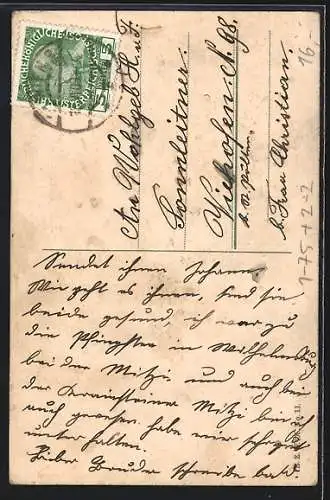 An Wohlgeb H. u. F.
Sonnleitner.
Viehofen N. 98.
b. St. Pölten.
b. Frau Christian.
16,-
1-75+2-2
5
Sendet ihnen Johann.
Wie geht es ihnen, sind sie
beide gesund, ich war zu
die Pfingsten in Wilhelmsburg
bei der Mitzi und auch bei
der Mitzi bin ich
auch gewesen. habe mir schön
unter halten.
Lieber Bruder schreibe bald.